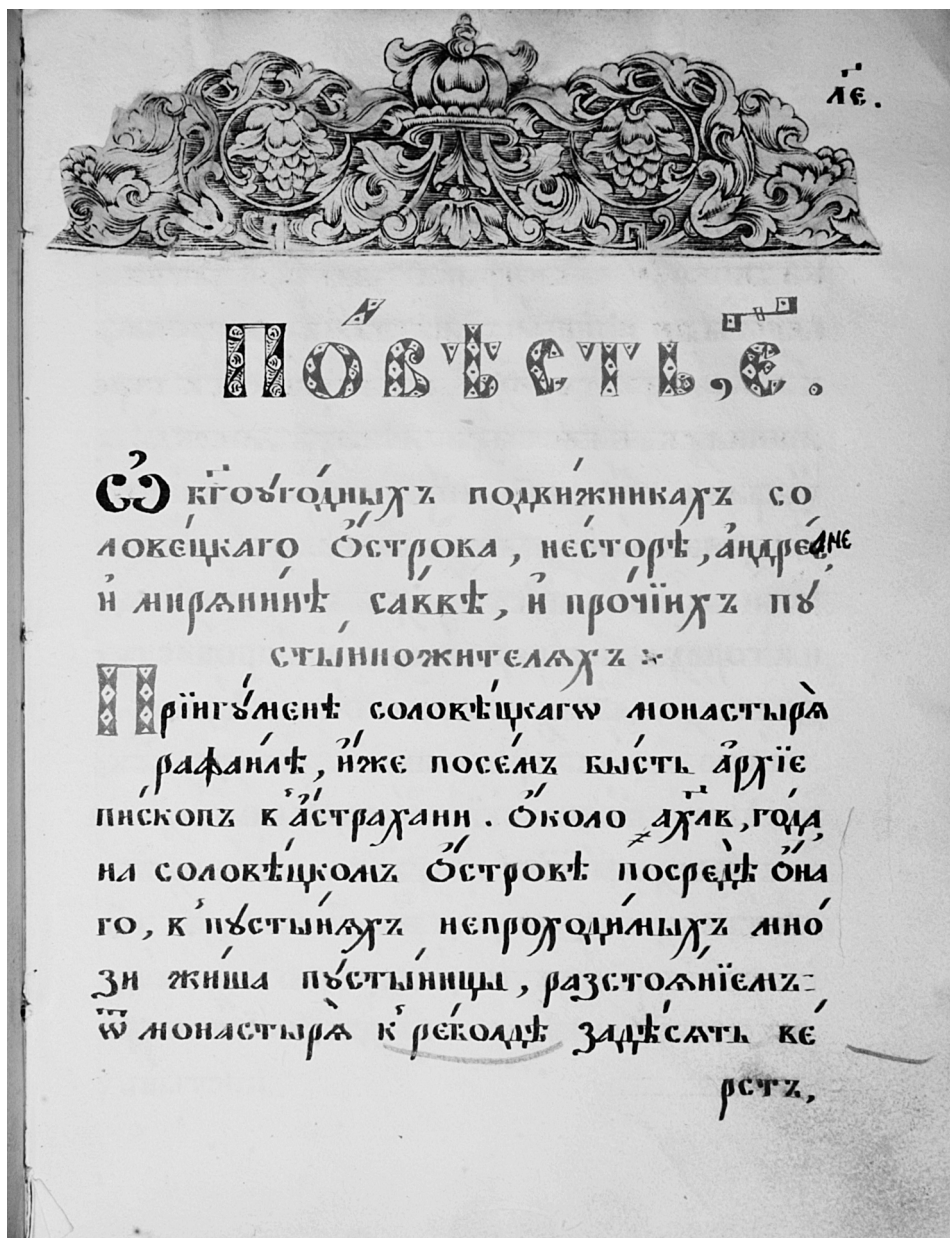 л҃е.
По́вѣсть, є҃.
Ѽ бг҃оуго́дныхъ подви́жникахъ со
лове́цкаго О҆́строва, не́сторѣ, а҆ндре́е, дне
и҆ миря́нинѣ са́ввѣ, и҆ про́чїихъ пꙋ
сты́нножителяхъ
Прїигꙋ́менѣ соловѣ́цкагѡ монастырѧ̀
рафаи́лѣ, и҆́же посе́мъ бы́сть а҆рхїе
пи́скопъ в а҆́страхани. О҆́коло ҂ахл҃в, го́да
на соловѣ́цкомъ О҆́стровѣ посредѣ̀ о҆́на
го, в пꙋсты́нѧхъ непроходи́мыхъ мно́
зи жи́ша пꙋсты́нницы, разстоѧ́нїемъ
ѿ монастырѧ̀ к ребо́лдѣ задѣ́сѧть ве́
рстъ,